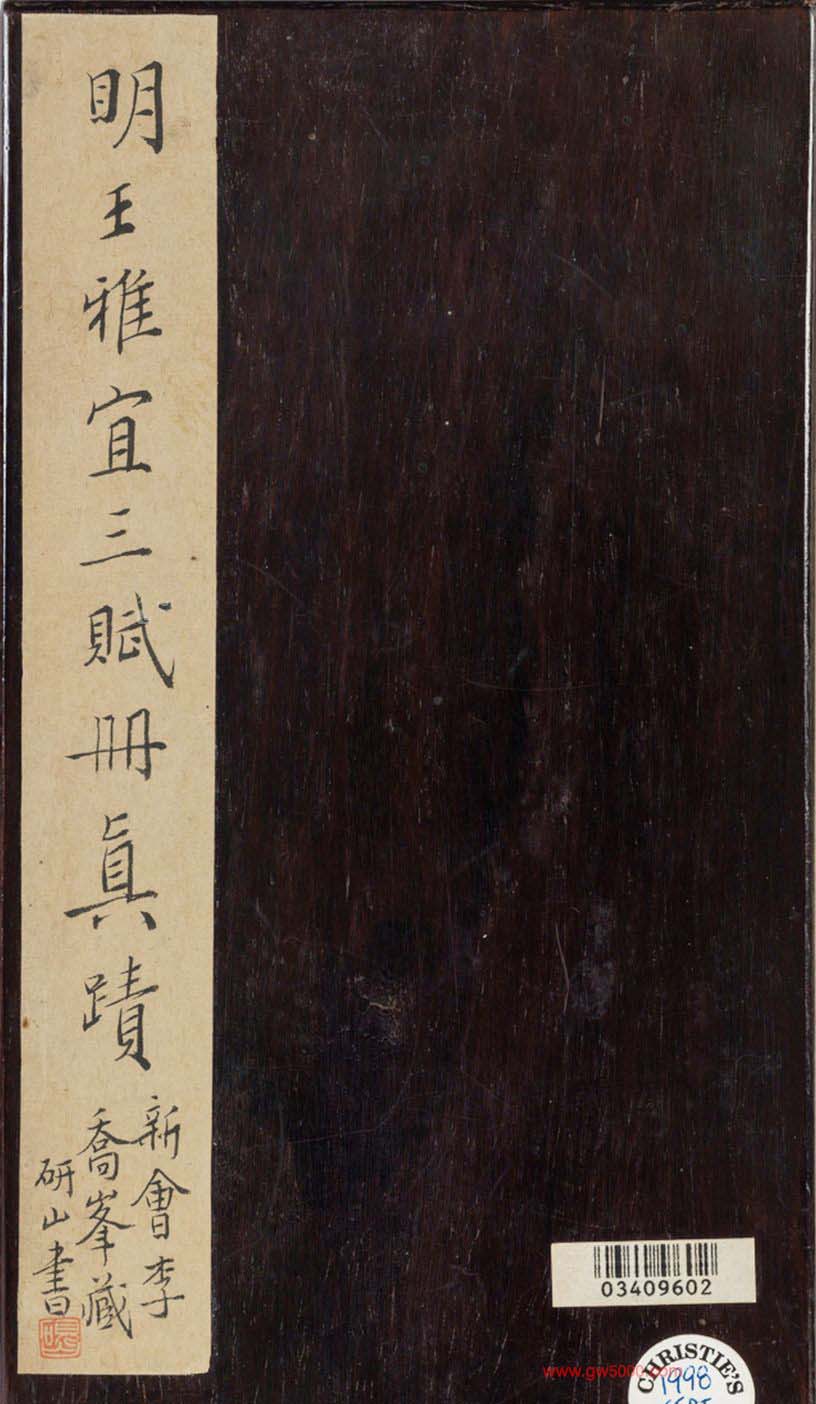 明王雅宜三賦冊真蹟
新會李
喬峯藏
研山書
03409602
www.gw500
CHRISTIE'S
1998
SEPT